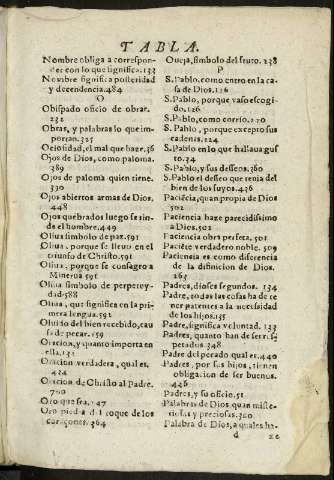 TABLA.
Nombre obliga a correspon-
der con lo que significa. 133
Nombre significa posteridad
y decendencia. 484
O
Obispado oficio de obrar.
231
Obras, y palabras lo que im-
portan. 325
Ociosidad, el mal que haze. 36
Ojos de Dios, como paloma.
389
Ojos de paloma quien tiene.
330
Ojos abiertos armas de Dios.
448
Ojos quebrados luego se rin-
de el hombre. 449
Oliua simbolo de paz. 591
Oliua, porque se lleuò en el
triunfo de Christo. 591
Oliua, porque se consagro a
Minerua 591
Oliua simbolo de perpetuy-
dad. 588
Oliua, que significa en la pri-
mera lengua. 591
Oluido del bien recebido, cau
sa de pecar. 159
Oracion, y quanto importa en
ella. 131
Oracion verdadera, qual es.
424
Oracion de Christo al Padre.
700
Oro que sea. 147
Oro piedra del toque de los
coraçones. 364
Oueja, simbolo del fruto. 238
P
S. Pablo, como entrò en la ca-
sa de Dios. 126
S. Pablo, porque vaso escogi-
do. 126
S. Pablo, como corrio. 120
S. Pablo, porque excepto sus
cadenas. 124
S. Pablo en lo que hallaua gus
to. 34
S. Pablo, y sus desseos. 360
S. Pablo el desseo que tenia del
bien de los suyos. 436
Paciẽcia, quan propia de Dios
502
Paciencia haze parecidissimo
a Dios. 502
Paciencia obra perfeta. 501
Paciẽte verdadero noble. 509
Paciencia es como diferencia
de la difinicion de Dios.
265
Padres, dioses segundos. 134
Padre, todas las cosas ha de te
ner patentes a la necessidad
de los hijos. 135
Padre, significa voluntad. 133
Padres, quanto han de ser res
petados. 348
Padre del pecado qual es. 440
Padres, por sus hijos, tienen
obligacion de ser buenos.
446
Padres, y su oficio. 51
Palabras de Dios quan miste-
riosas y preciosas. 300
Palabra de Dios, a quales ha-
d
ze